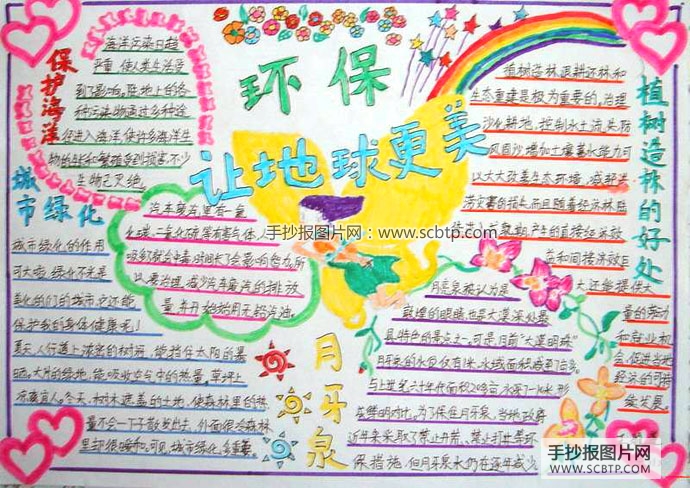 环保
让地球更美
保护海洋
海洋污染日趋
严重,使人类生活受
到了影响,陆地上的各
种污染物通过多种途
径进入海洋,使许多海洋生
物的生长和繁殖受到损害,不少
生物已灭绝。
植树造林的好处
植树造林,退耕还林,和
生态重建是极为重要的。治理
沙化耕地,控制水土流失,防
风固沙增加土壤蓄水能力,可
以大大改善生态环境,减轻洪
涝灾害的损失,而且随着经济林陆
产生的直接经济效
益和间接经济效益
大,还能提供大
量的劳动
和就业机
会,促进当地
经济的可持
续发展。
城市绿化
城市绿化的作用
可大啦,绿化不光是
美化咱们的城市,它还能
保护我们的身体健康呢!
夏天,人行道上浓密的树洞,能挡住太阳的暴
晒。大片的绿地,能吸收空气中的热量。草坪上
凉爽宜人。冬天,树木遮盖的土地,使森林里的热
量不会一下子散发出去,外面很冷,森林
里却很暖和。可见,城市绿化,多重要。
汽车废气里有一氧
化碳、二氧化硫等有害气体,人
吸多了就会中毒,时间长了会影响智力,所
以要治理,减少汽车尾气的排放
量,并开始使用无铅汽油。
手抄报图片网:www.scbtp.com
月牙泉
月牙泉被认为是
敦煌的眼睛,也是大漠深处最
具特色的景点之一。可是,目前“大漠明珠”
月牙泉的水位仅有1米,水域面积减至了8亩。
与上世纪六十年代面积22.5亩,水深7—10米,形
成鲜明对比。为了保住月牙泉,当地政府
近年来采取了禁止开荒,禁止打井等环
保措施,但月牙泉水仍在逐年减少
手抄报图片网
WWW.SCBTP.COM